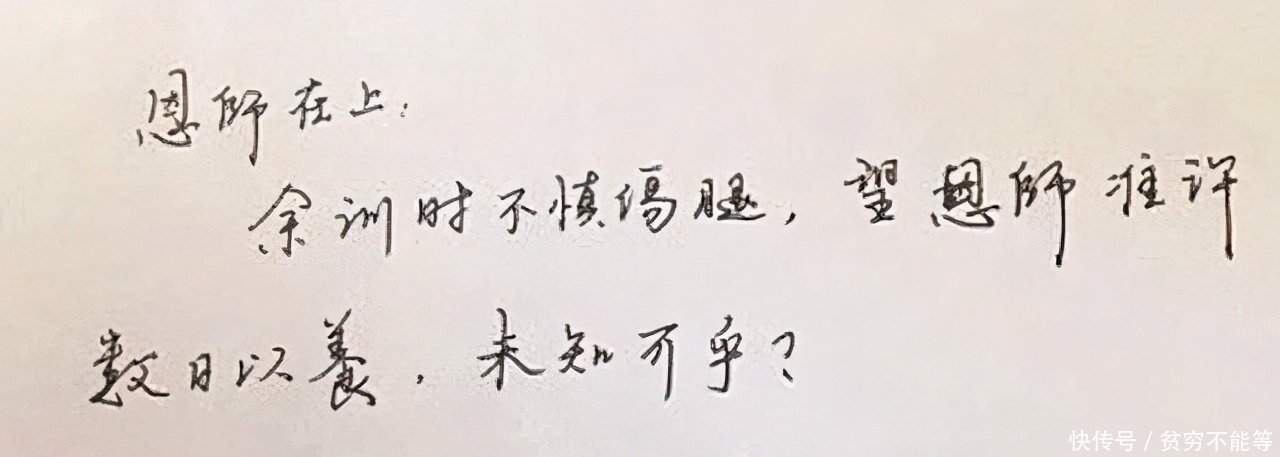 恩師在上：
余训时不慎伤腿，望恩師准许
数日以養，未知可乎？
快传号 / 贫穷不能等